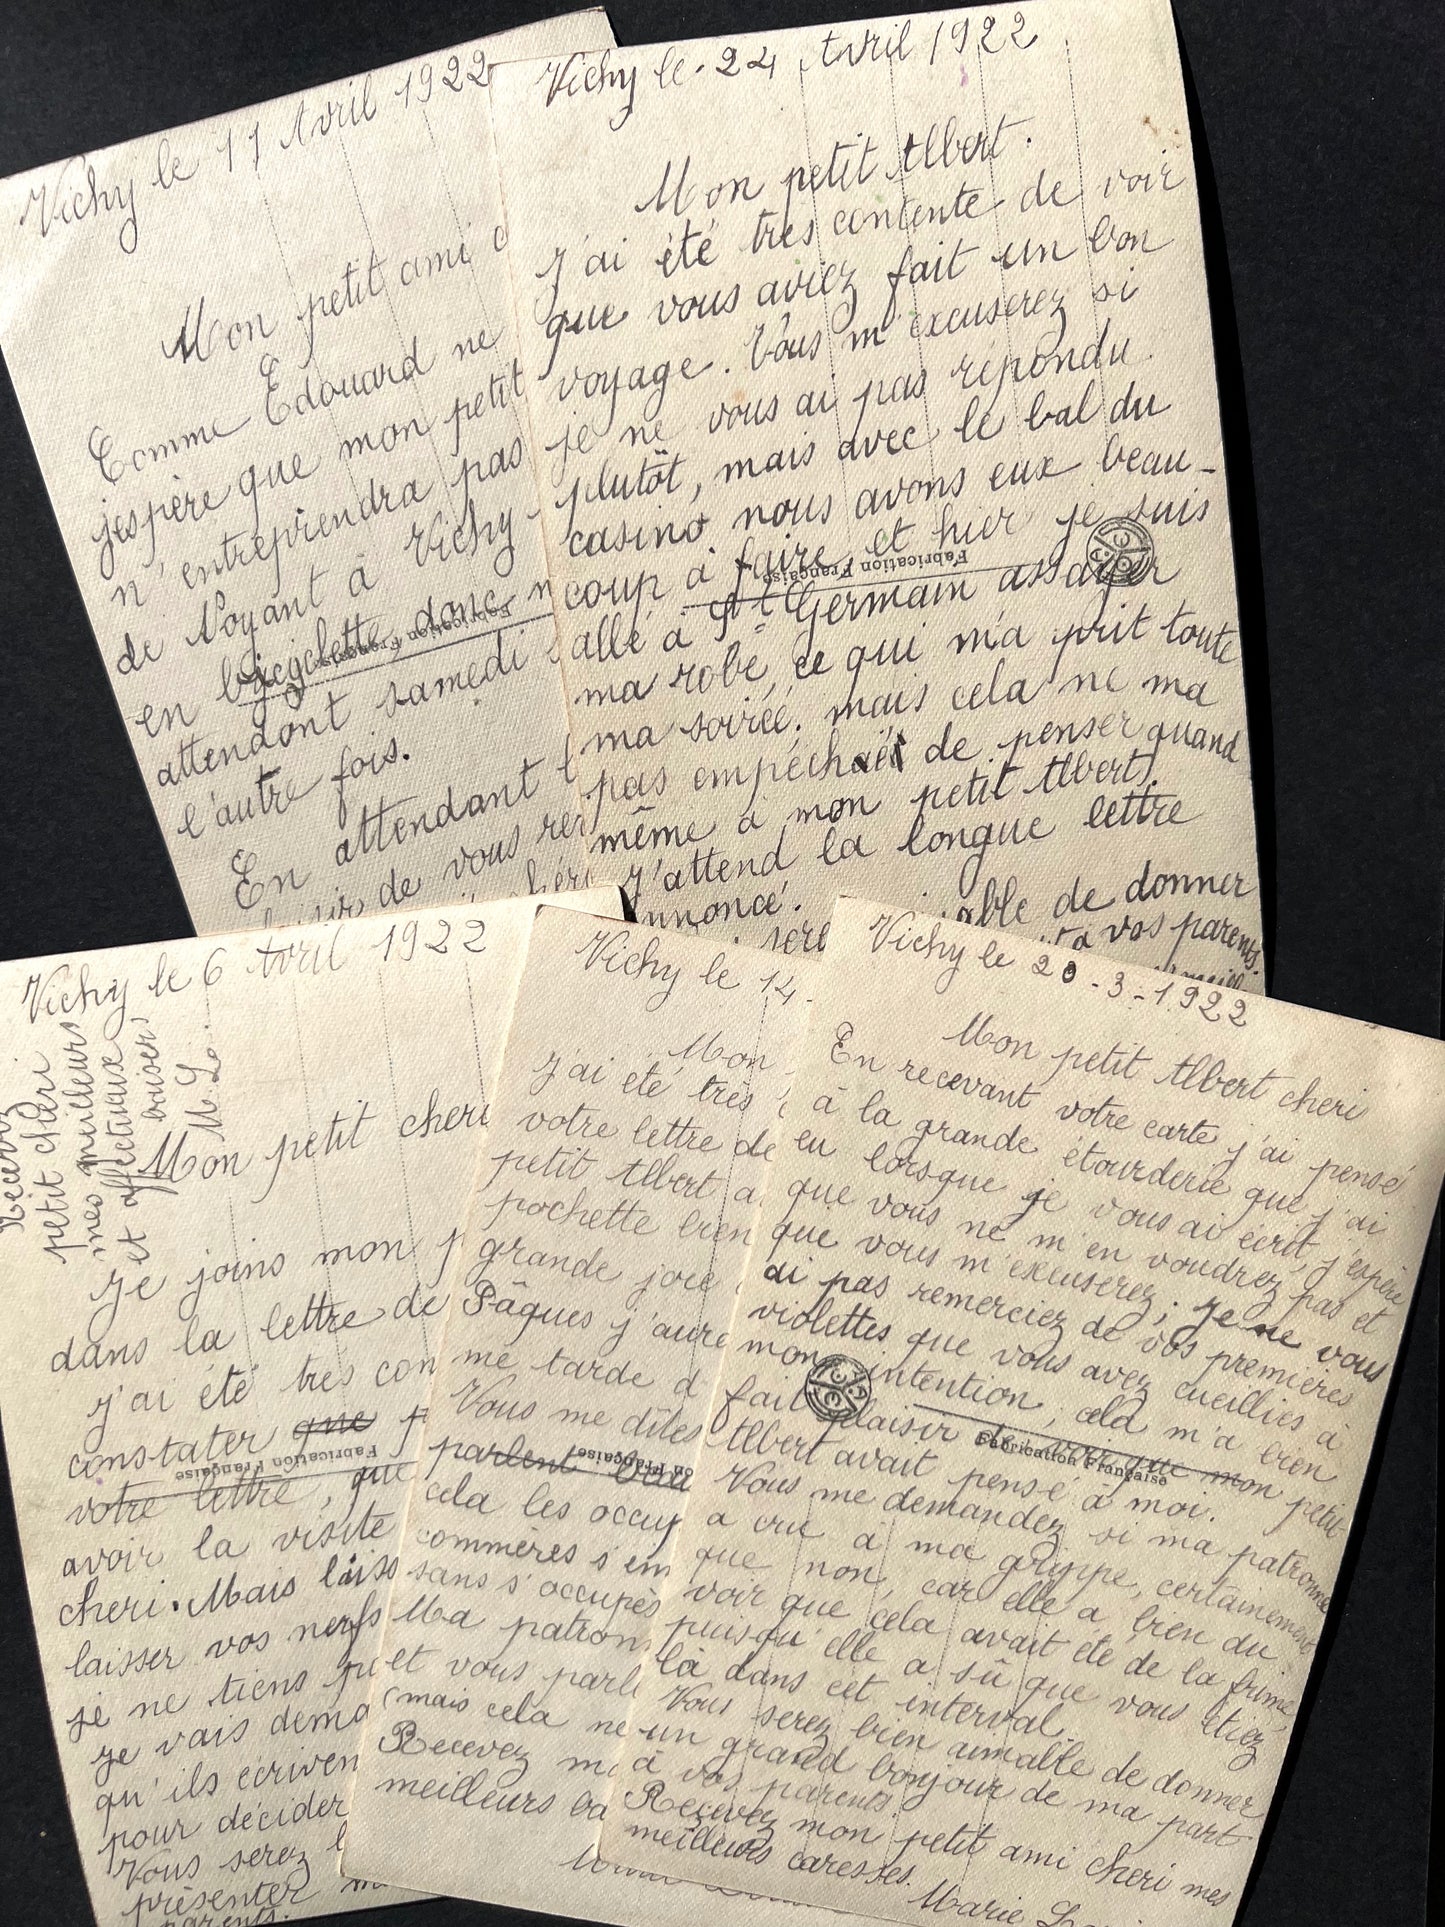 Vichy le 11 Avril 1922
Mon petit ami c
Comme Edouard ne
j'espère que mon petit
n'entreprendra pas
de Noyant à Vichy
en bicyclette donc n
attendont samedi
l'autre fois.
En attendant
de vous re
chéri
Fabrication Française
Vichy le 24 Avril 1922
Mon petit Albert.
J'ai été très contente de voir
que vous aviez fait un bon
voyage. Vous m'excuserez si
je ne vous ai pas répondu
plutôt, mais avec le bal du
casino nous avons eux beau-
coup à faire, et hier je suis
allé à St Germain assayer
ma robe, ce qui m'a prit toute
ma soirée. mais cela ne ma
pas empéchaér de penser quand
même à mon petit Albert.
J'attend la longue lettre
nnoncé.
sere able de donner
à vos parents.
Fabrication Française
Vichy le 6 Avril 1922
Recevez
petit chéri
mes meilleurs
et affectueux
baisers
M. L.
Mon petit cheri
Je joins mon p
dans la lettre de
J'ai été très con
constater que
votre lettre, que
avoir la visite
cheri. Mais laiss
laisser vos nerfs
je ne tiens p
je vais dema
qu'ils écriven
pour décider
Vous serez
présenter m
parents.
Fabrication Française
Vichy le 14-
Mon
J'ai été très
votre lettre de
petit Albert a
pochette bien
grande joie
Pâques j'aure
me tarde d
Vous me dîtes
parlent bea
cela les occup
commères s'em
sans s'occupés
Ma patron
et vous parl
(mais cela ne
Recevez m
meilleurs ba
on Française
Vichy le 20-3-1922
Mon petit Albert cheri
En recevant votre carte, j'ai pensé
à la grande étourderie que j'ai
eu lorsque je vous ai écrit, j'espère
que vous ne m'en voudrez pas et
que vous m'excuserez; je ne vous
ai pas remerciez de vos premières
violettes que vous avez cueillies à
mon intention, cela m'a bien
fait plaisir de voir que mon petit
Albert avait pensé à moi.
Vous me demandez si ma patronne
a cru à ma grippe, certainement
que non, car elle a bien du
voir que cela avait été de la frime,
puisqu'elle a sû que vous étiez
là dans cet interval.
Vous serez bien aimable de donner
un grand bonjour de ma part
à vos parents.
Recevez mon petit ami cheri mes
meilleurs caresses.
Marie L
Fabrication Française